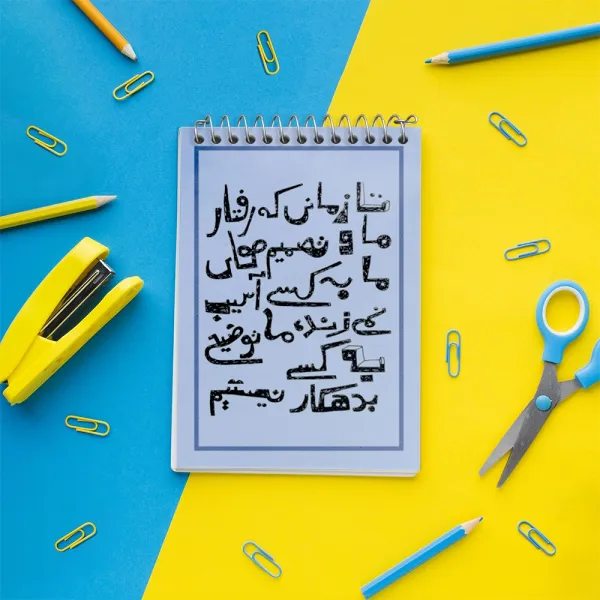 تا زمانی که رفتار
ما و تصمیم هامان
ما به کسی آسیب
نمی زند، ما توضیحی
به کسی
بدهکار نیستیم